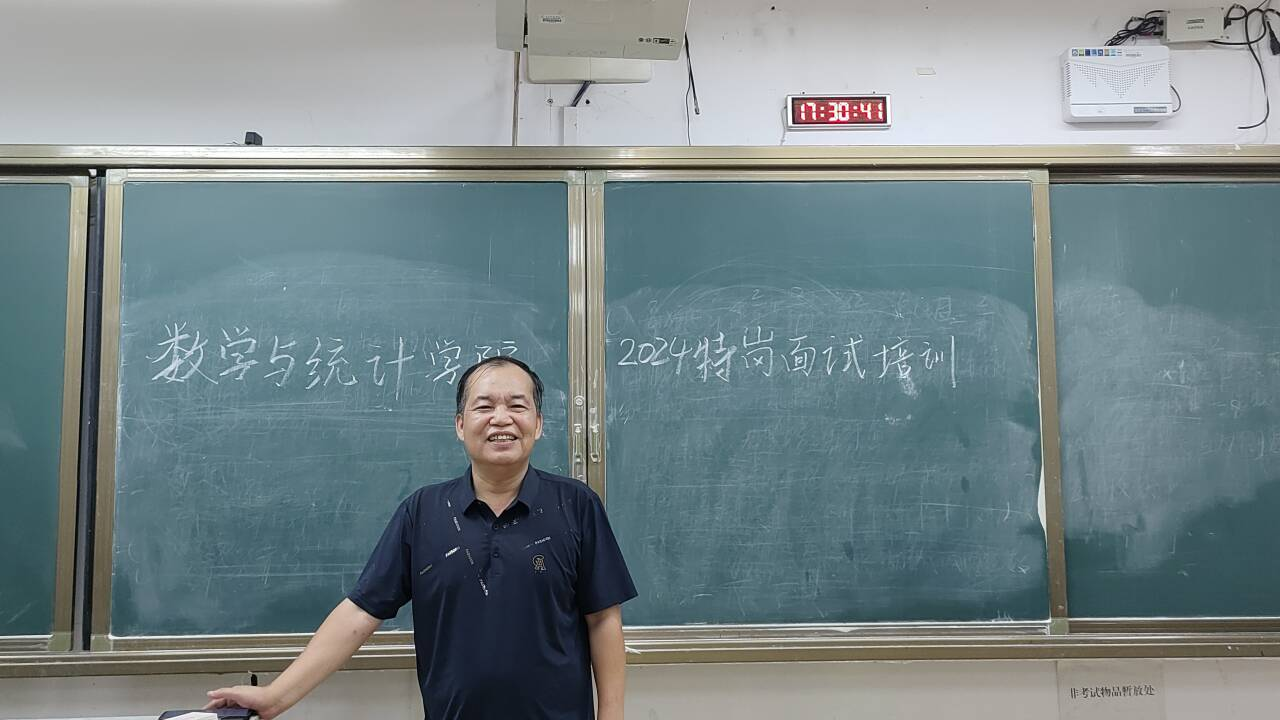 17:30:41
数学与统计学院
2024特岗面试培训
非考试物品暂放处